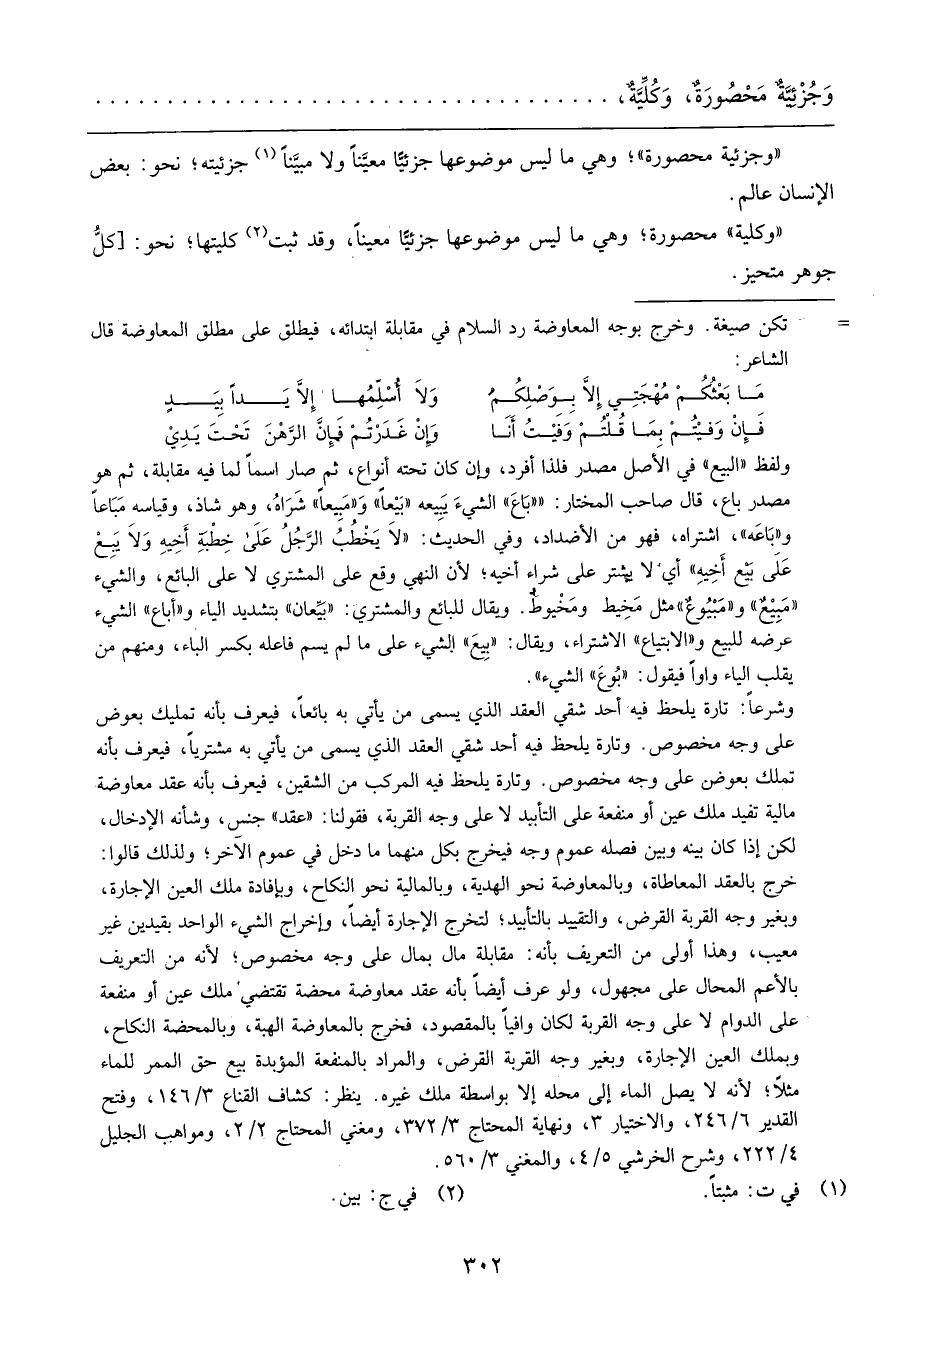 وَجُزْئِيَّةٌ مَحْصُورَةٌ، وَكُلِّيَّةٌ، . . . . . . . . . . . . . . . . . . . . . . . . . . . . . . . . . . . .
«وجزئية محصورة»؛ وهي ما ليس موضوعها جزئيًّا معيَّناً ولا مبيَّناً(١) جزئيته؛ نحو: بعض
الإنسان عالم.
«وكلية» محصورة؛ وهي ما ليس موضوعها جزئيًّا معيناً، وقد ثبت(٢) كليتها؛ نحو: [كلُّ
جوهر متحيز.
= تكن صيغة. وخرج بوجه المعاوضة رد السلام في مقابلة ابتدائه، فيطلق على مطلق المعاوضة قال
الشاعر:
مَا بَعْتُكُمْ مُهْجَتِي إِلاَّ بِوَصْلِكُمُ وَلاَ أُسْلِّمُهَا إِلاَّ يَداً بِيَدٍ
فَإِنْ وَفَيْتُمْ بِمَا قُلْتُمْ وَفَيْتُ أَنَا وَإِنْ غَدَرْتُمْ فَإِنَّ الرَّهْنَ تَحْتَ يَدِيْ
ولفظ «البيع» في الأصل مصدر فلذا أفرد، وإن كان تحته أنواع، ثم صار اسماً لما فيه مقابلة، ثم هو
مصدر باع، قال صاحب المختار: ««بَاعَ» الشيءَ يَبِيعه «بَيْعاً» وَ«مَبِيعاً» شَرَاهُ، وهو شاذ، وقياسه مَبَاعاً
و«بَاعَه»، اشتراه، فهو من الأضداد، وفي الحديث: «لاَ يَخْطُبُ الرَّجُلُ عَلَىٰ خِطْبَةِ أَخِيهِ وَلاَ يَبِعْ
عَلَى بَيْعِ أَخِيهِ» أي لا يشتر على شراء أخيه؛ لأن النهي وقع على المشتري لا على البائع، والشيء
«مَبِيْعٌ» و«مَبْيُوعٌ» مثل مَخِيط ومَخْيوطٌ. ويقال للبائع والمشتري: «بَيِّعان» بتشديد الياء و«أباع» الشيء
عرضه للبيع و«الابتياع» الاشتراء، ويقال: «بِيعَ» الشيء على ما لم يسم فاعله بكسر الباء، ومنهم من
يقلب الياء واواً فيقول: «بُوعَ» الشيء».
وشرعاً: تارة يلحظ فيه أحد شقي العقد الذي يسمى من يأتي به بائعاً، فيعرف بأنه تمليك بعوض
على وجه مخصوص. وتارة يلحظ فيه أحد شقي العقد الذي يسمى من يأتي به مشترياً، فيعرف بأنه
تملك بعوض على وجه مخصوص. وتارة يلحظ فيه المركب من الشقين، فيعرف بأنه عقد معاوضة
مالية تفيد ملك عين أو منفعة على التأبيد لا على وجه القربة، فقولنا: «عقد» جنس، وشأنه الإدخال،
لكن إذا كان بينه وبين فصله عموم وجه فيخرج بكل منهما ما دخل في عموم الآخر؛ ولذلك قالوا:
خرج بالعقد المعاطاة، وبالمعاوضة نحو الهدية، وبالمالية نحو النكاح، وبإفادة ملك العين الإجارة،
وبغير وجه القربة القرض، والتقييد بالتأبيد؛ لتخرج الإجارة أيضاً، وإخراج الشيء الواحد بقيدين غير
معيب، وهذا أولى من التعريف بأنه: مقابلة مال بمال على وجه مخصوص؛ لأنه من التعريف
بالأعم المحال على مجهول، ولو عرف أيضاً بأنه عقد معاوضة محضة تقتضي ملك عين أو منفعة
على الدوام لا على وجه القربة لكان وافياً بالمقصود، فخرج بالمعاوضة الهبة، وبالمحضة النكاح،
وبملك العين الإجارة، وبغير وجه القربة القرض، والمراد بالمنفعة المؤبدة بيع حق الممر للماء
مثلاً؛ لأنه لا يصل الماء إلى محله إلا بواسطة ملك غيره. ينظر: كشاف القناع ٣/ ١٤٦، وفتح
القدير ٦/ ٢٤٦، والاختيار ٣، ونهاية المحتاج ٣/ ٣٧٢، ومغني المحتاج ٢/ ٢، ومواهب الجليل
٤/ ٢٢٢، وشرح الخرشي ٥/ ٤، والمغني ٣/ ٥٦٠.
(١) في ت: مثبتاً. (٢) في ج: بين.
٣٠٢